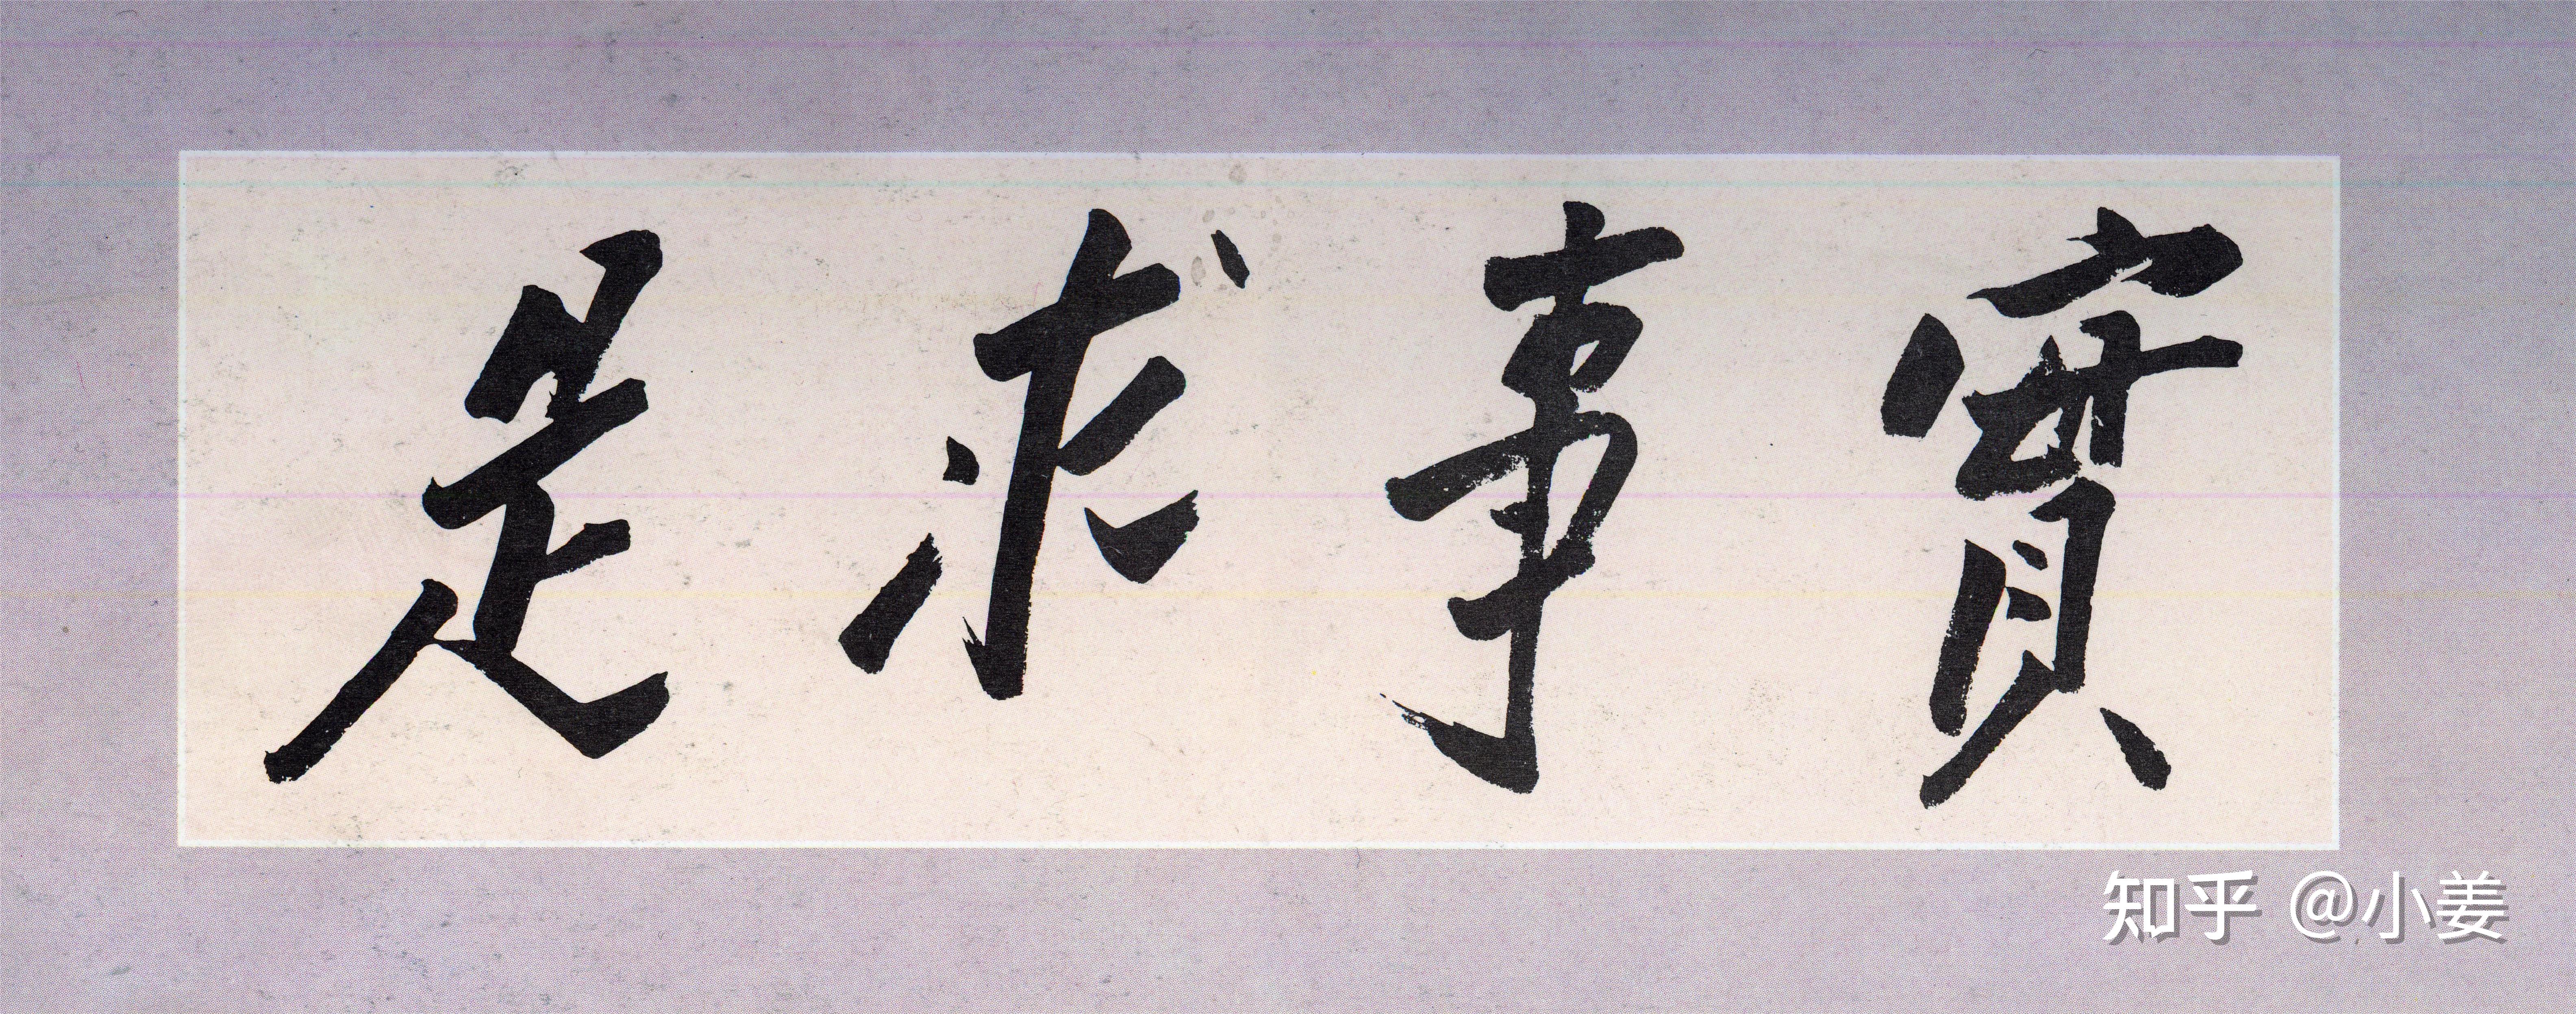 實事求是
知乎 @小姜